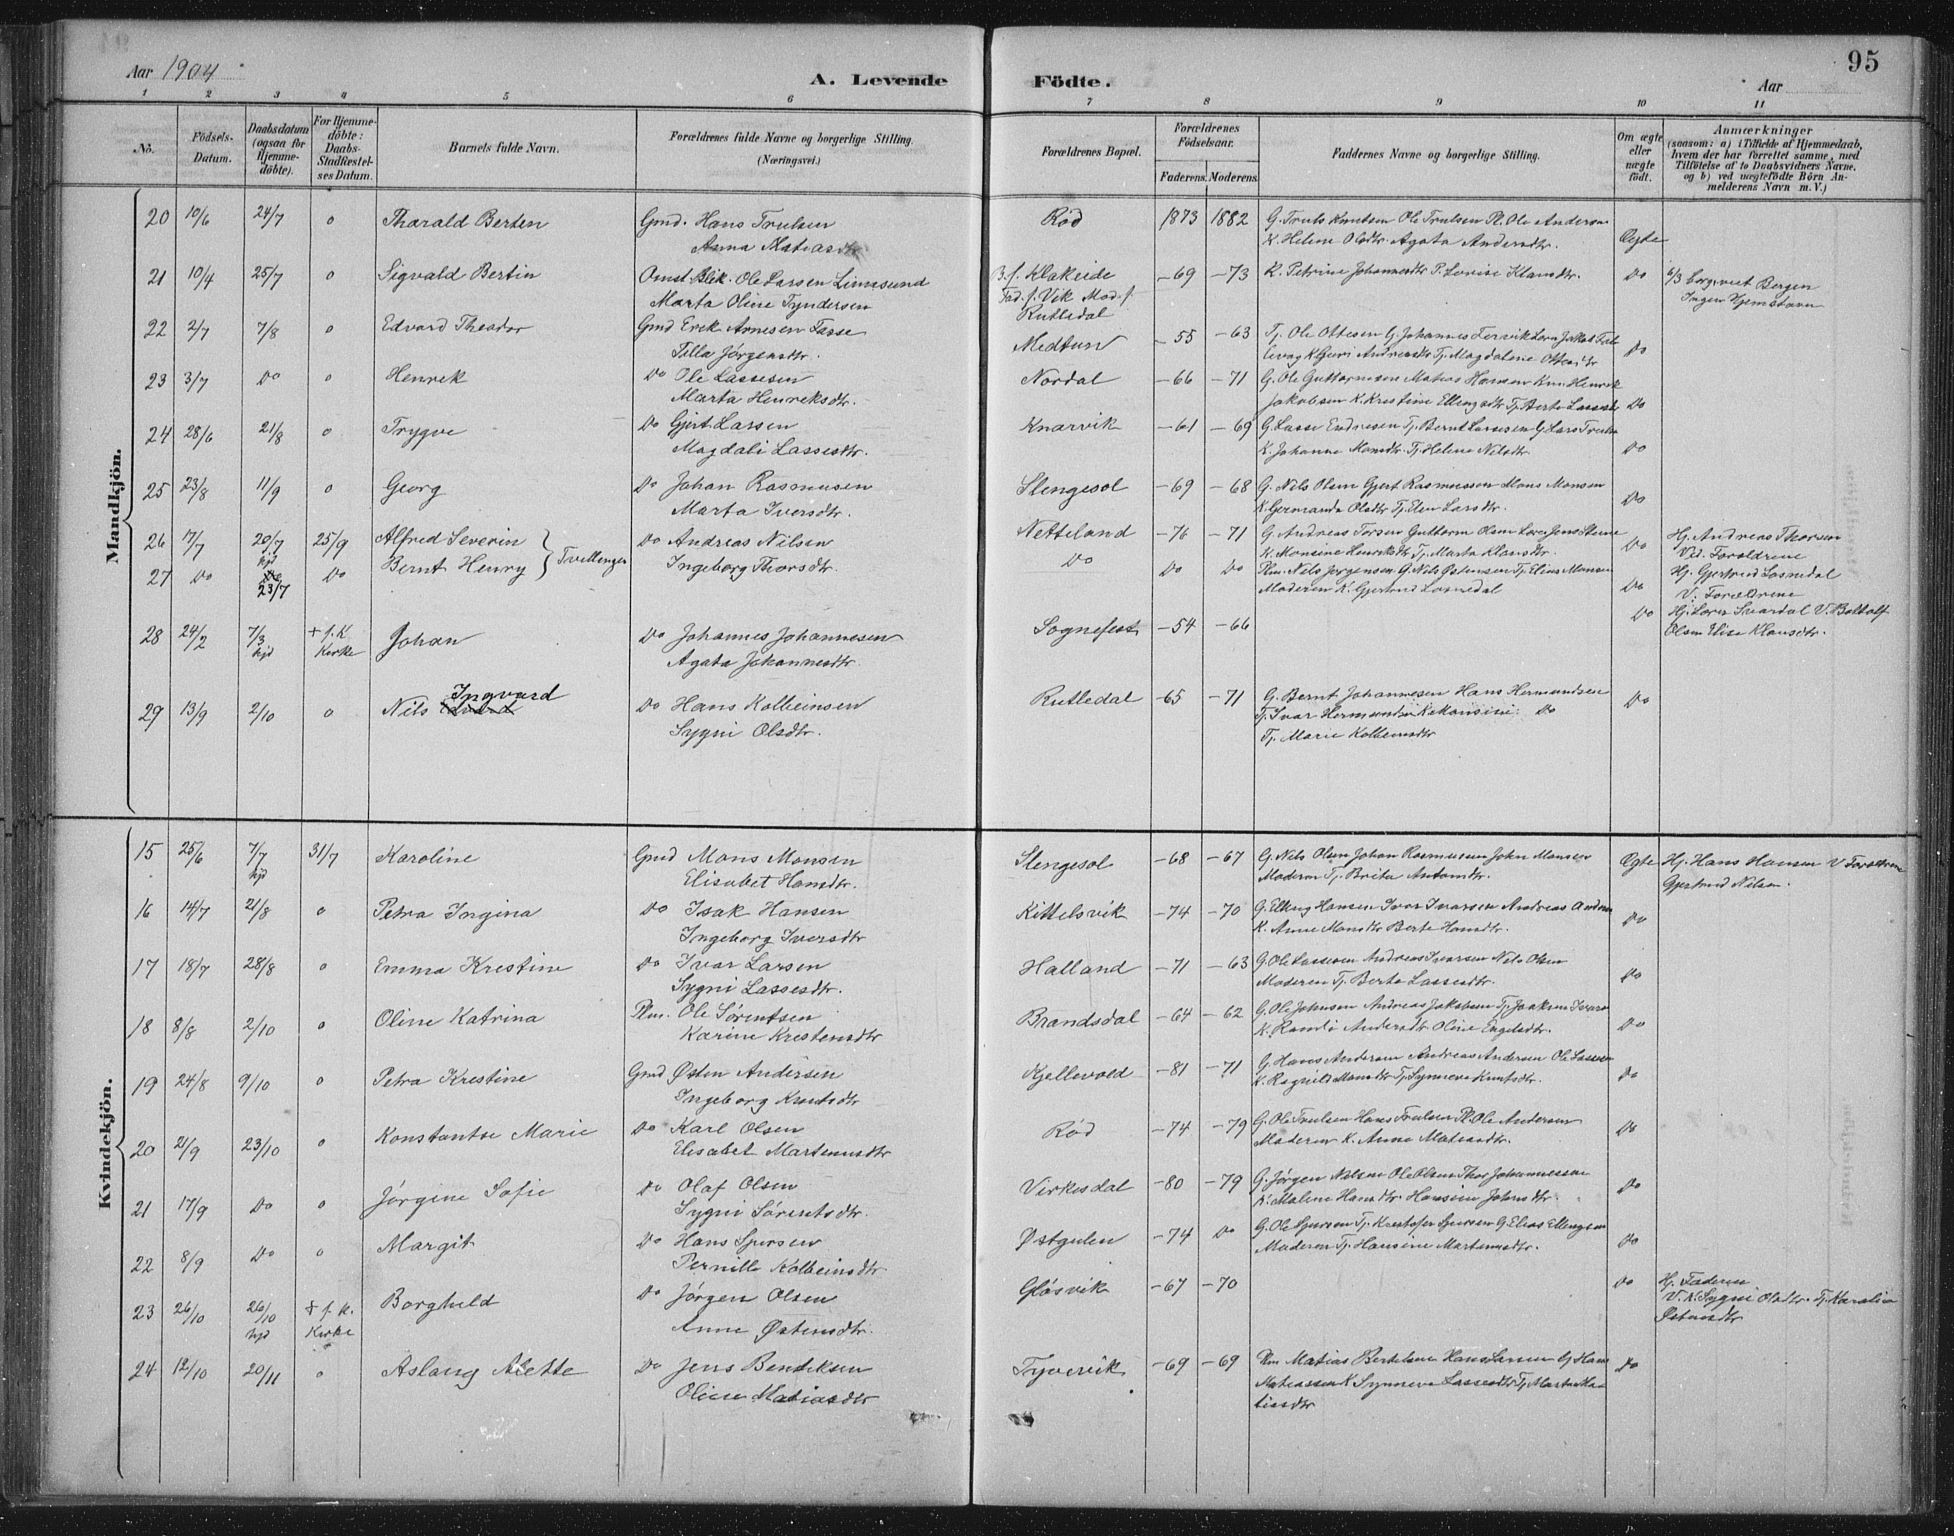 95
Aar 1904 A. Levende Födte. Aar
1 2 3 4 5 6 7 8 9 10 11
No. Födsels-Datum. Daabsdatum (ogsaa for Hjemme-döbte). For Hjemme-döbte: Daabs-Stadfæstel-ses Datum. Barnets fulde Navn. Forældrenes fulde Navne og borgerlige Stilling. (Næringsvei.) Forældrenes Bopæl. Forældrenes Födselsaar. Faderens. Moderens. Faddernes Navne og borgerlige Stilling. Om ægte eller uægte födt. Anmærkninger (saasom: a) i Tilfælde af Hjemmedaab, hvem der har forrettet samme, med Tilföielse af to Daabsvidners Navne, og b) ved uægtefödte Börn An-melderens Navn m. V.)
Mandkjön.
20 10/6 24/7 o Tharald Berten Gmd. Hans Trulsen Rød 1873 1882 G. Truls Knutsen Ole Trulsen Pl. Ole Andersen
Anna Matiasdtr K. Helene Olsdtr. Agata Andersdtr. Ægte
21 10/4 25/7 o Sigvald Bertin Omst. Blik. Ole Larsen Limesund B. f. Klakeide -69 -73 K. Petrine Johannesdtr P. Lovise Klausdtr. Do 6/3 Bergen
Marta Oline Tyndersen Fad. f. Vik Mod. f. Ingen Hjemstavn
Rutledal
22 2/7 7/8 o Edvard Theodor Gmd Erik Arnesen Tasse Midtun -55 -63 Tj. Ole Ottesen G. Johannes
Tilla Jørgensdtr. K. Guri Andreasdtr Tj. Magdalene Ottesdtr Do
23 3/7 Do o Henrik Do Ole Lassesen Nordal -66 -71 G. Ole Guttormsen Matias Hansen Henrik
Marta Henriksdtr. Jakobsen K. Kristine Ellingsdtr Tj. Berta Lassesdtr Do
24 28/6 21/8 o Trygve Do Gjert Larsen Knarvik -61 -69 G. Lasse Endresen Tj. Bernt Larsesen G. Lars
Magdali Lassesdtr. K. Johanne Monsdtr. Tj. Helene Nilsdtr Do
25 23/8 11/9 o Georg Do Johan Rasmusen Slengesol -69 -68 G. Nils Olsen Gjert Rasmussen Mons Monsen
Marta Iversdtr. K. Germanda Olsdtr Tj. Elen Larsdtr. Do
26 17/7 20/7 hjd 25/9 Alfred Severin } Tvillinger Do Andreas Nilsen Netteland -76 -71 G. Andreas Torsen Guttorm Olsen Jens Steine Do Hj. Andreas Thorsen
K. Monsine Henrikdtr Tj. Marta Klausdtr. Vid. Foreldrene
27 Do 23/7 Do Bernt Henry Ingeborg Thorsdtr. Do Do Do Plm. Nils Jørgensen G. Nils Østensen Tj. Elias Monsen Hj. Gjertrud Losnedal
Moderen K. Gjertrud Losnedal Do V: Forældrene
28 24/2 7/3 hjd + f. K Kirke Johan Do Johannes Johannesen Sognefest -54 -66 Do Hj. Svardal V. Baltolf
Agata Johannesdtr. Olsen Elisa Klausdtr.
29 13/9 2/10 o Nils Ingvard Do Hans Kolbeinsen Rutledal -65 -71 G. Bernt Johannesen Hans Hermundsen Do
Sygni Olsdtr. Tj. Ivar Hermundsen K. Monsine Do
Tj. Marie Kolbeinsdtr
Kvindekjön.
15 25/6 7/7 hjd 31/7 Karoline Gmd Mons Monsen Slengesol -68 -67 G. Nils Olsen Johan Rasmussen John Monsen Ægte Hj. Hans Hansen V Forældrene
Elisabet Hansdtr. Moderen Tj. Brita Antonsdtr. Gjertrud Nilsen.
16 14/7 21/8 o Petra Ingina Do Isak Hansen Kittelsvik -74 -70 G. Elling Hansen Ivar Ivarsen Andreas Andersen
Ingeborg Iversdtr K. Anne Monsdtr Berte Hansdtr. Do
17 18/7 28/8 o Emma Kristine Do Ivar Larsen Halland -71 -63 G. Ole Lassesen Andreas Ivarsen Nils Olsen
Sygni Lassesdtr. Moderen Tj. Berta Lassesdtr. Do
18 8/8 2/10 o Oline Katrina Plm. Ole Sørentsen Brandsdal -64 -62 G. Ole Johnsen Andreas Jakobsen Tj. Joakim
Karine Kristensdtr K. Randi Andersdtr. Oline Engelsdtr. Do
19 24/8 9/10 o Petra Kristine Gmd Østen Andersen Kjellevold -81 -71 G. Hans Andersen Andreas Andersen Ole Lassesen
Ingeborg Knutsdtr K. Ragnild Monsdtr Tj. Synneve Knutsdtr. Do
20 21/9 23/10 o Konstantse Marie Do Karl Olsen Rød -74 -79 G. Ole Trulsen Hans Trulsen Pl. Ole Andersen Do
Elisabet Martinusdtr Moderen K. Anne Matiasdtr.
21 17/9 Do o Jørgine Sofie Do Olaf Olsen Virkesdal -80 -79 G. Jørgen Nilsen Ole Olsen Thor Johannessen Do
Sygni Sørentsdtr. K. Malene Hansdtr. Hansine Johnsdtr.
22 8/9 Do o Margit Do Hans Sjursen Østgulen -74 Do G. Ole Sjursen Tj. Kristofer Sjursen G. Elias Ellingsen
Pernille Kolbeinsdtr Moderen Tj. Hansine Martinusdtr. Do
23 26/10 26/10 hjd + f. k. Kirke Borghild Do Jørgen Olsen Gløsvik -67 -70 Do Hj. Faderen
Anne Østensdtr. V. K. Sygni Olsdtr. Tj. Karoline
Østensdtr
24 12/10 20/11 o Aslaug Alette Do Jens Bendiksen Tyvevik -69 -69 Plm Matias Bertelsen Hans Larsen G. Hans Do
Oline Matiasdtr Matiassen K. Synneva Lassesdtr Tj. Marta Ma-
tiasdtr